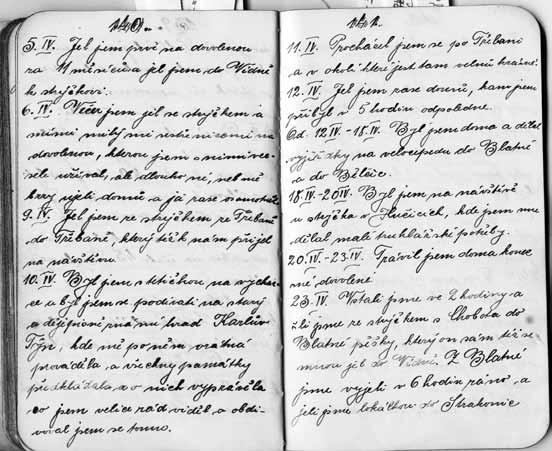 140.
5. IV. Jel jsem prvě na dovolenou
za 11 měsíců a jel jsem do Vídně
k strýčkovi.
6. IV. Večer jsem jel se strýčkem a
mými milými
dovolenou, kterou jsem s nimi ve-
sele užíval, ale dlouho ne, neb mě
brzy ujeli domů a já zase samotně
9. IV. Jel jsem se strýčkem ze Třebaně
do Třebaně, který též k nám přijel
na návštěvu.
10. IV. Byl jsem s tetičkou na vycház-
ce a byl jsem se podívati na starý
a dějepisně známý hrad Karlův
Týn, kde ně po něm vrátná
prováděla a všechny památky
předkládala, a o nich vyprávěla
co jsem velice rád viděl a obdi-
voval jsem se tomu.
141.
11. IV. Procházel jsem se po Třebani
a v okolí které jest tam velmi krásné.
12. IV. Jel jsem zase domů, kam jsem
přibyl v 5 hodin odpoledne.
Od. 12 IV. - 18. IV. Byl jsem doma a dělal
vyjížďky na velocipedu do Blatné
a do Bělčic.
18. IV. - 20 IV. Byl jsem na návštěvě
u strýčka v Hučicích, kde jsem mu
dělal malé truhlářské potřeby.
20. IV. - 23. IV. Trávil jsem doma konec
mé dovolené
23. IV. Vstali jsme ve 2 hodiny a
šli jsme se strýčkem s Chobota do
Blatné pěšky, který on sám též se
mnou jel do Vídně. Z Blatné
jsme vyjeli v 6 hodin ráno, a
jeli jsme lokálkou do Strakonic